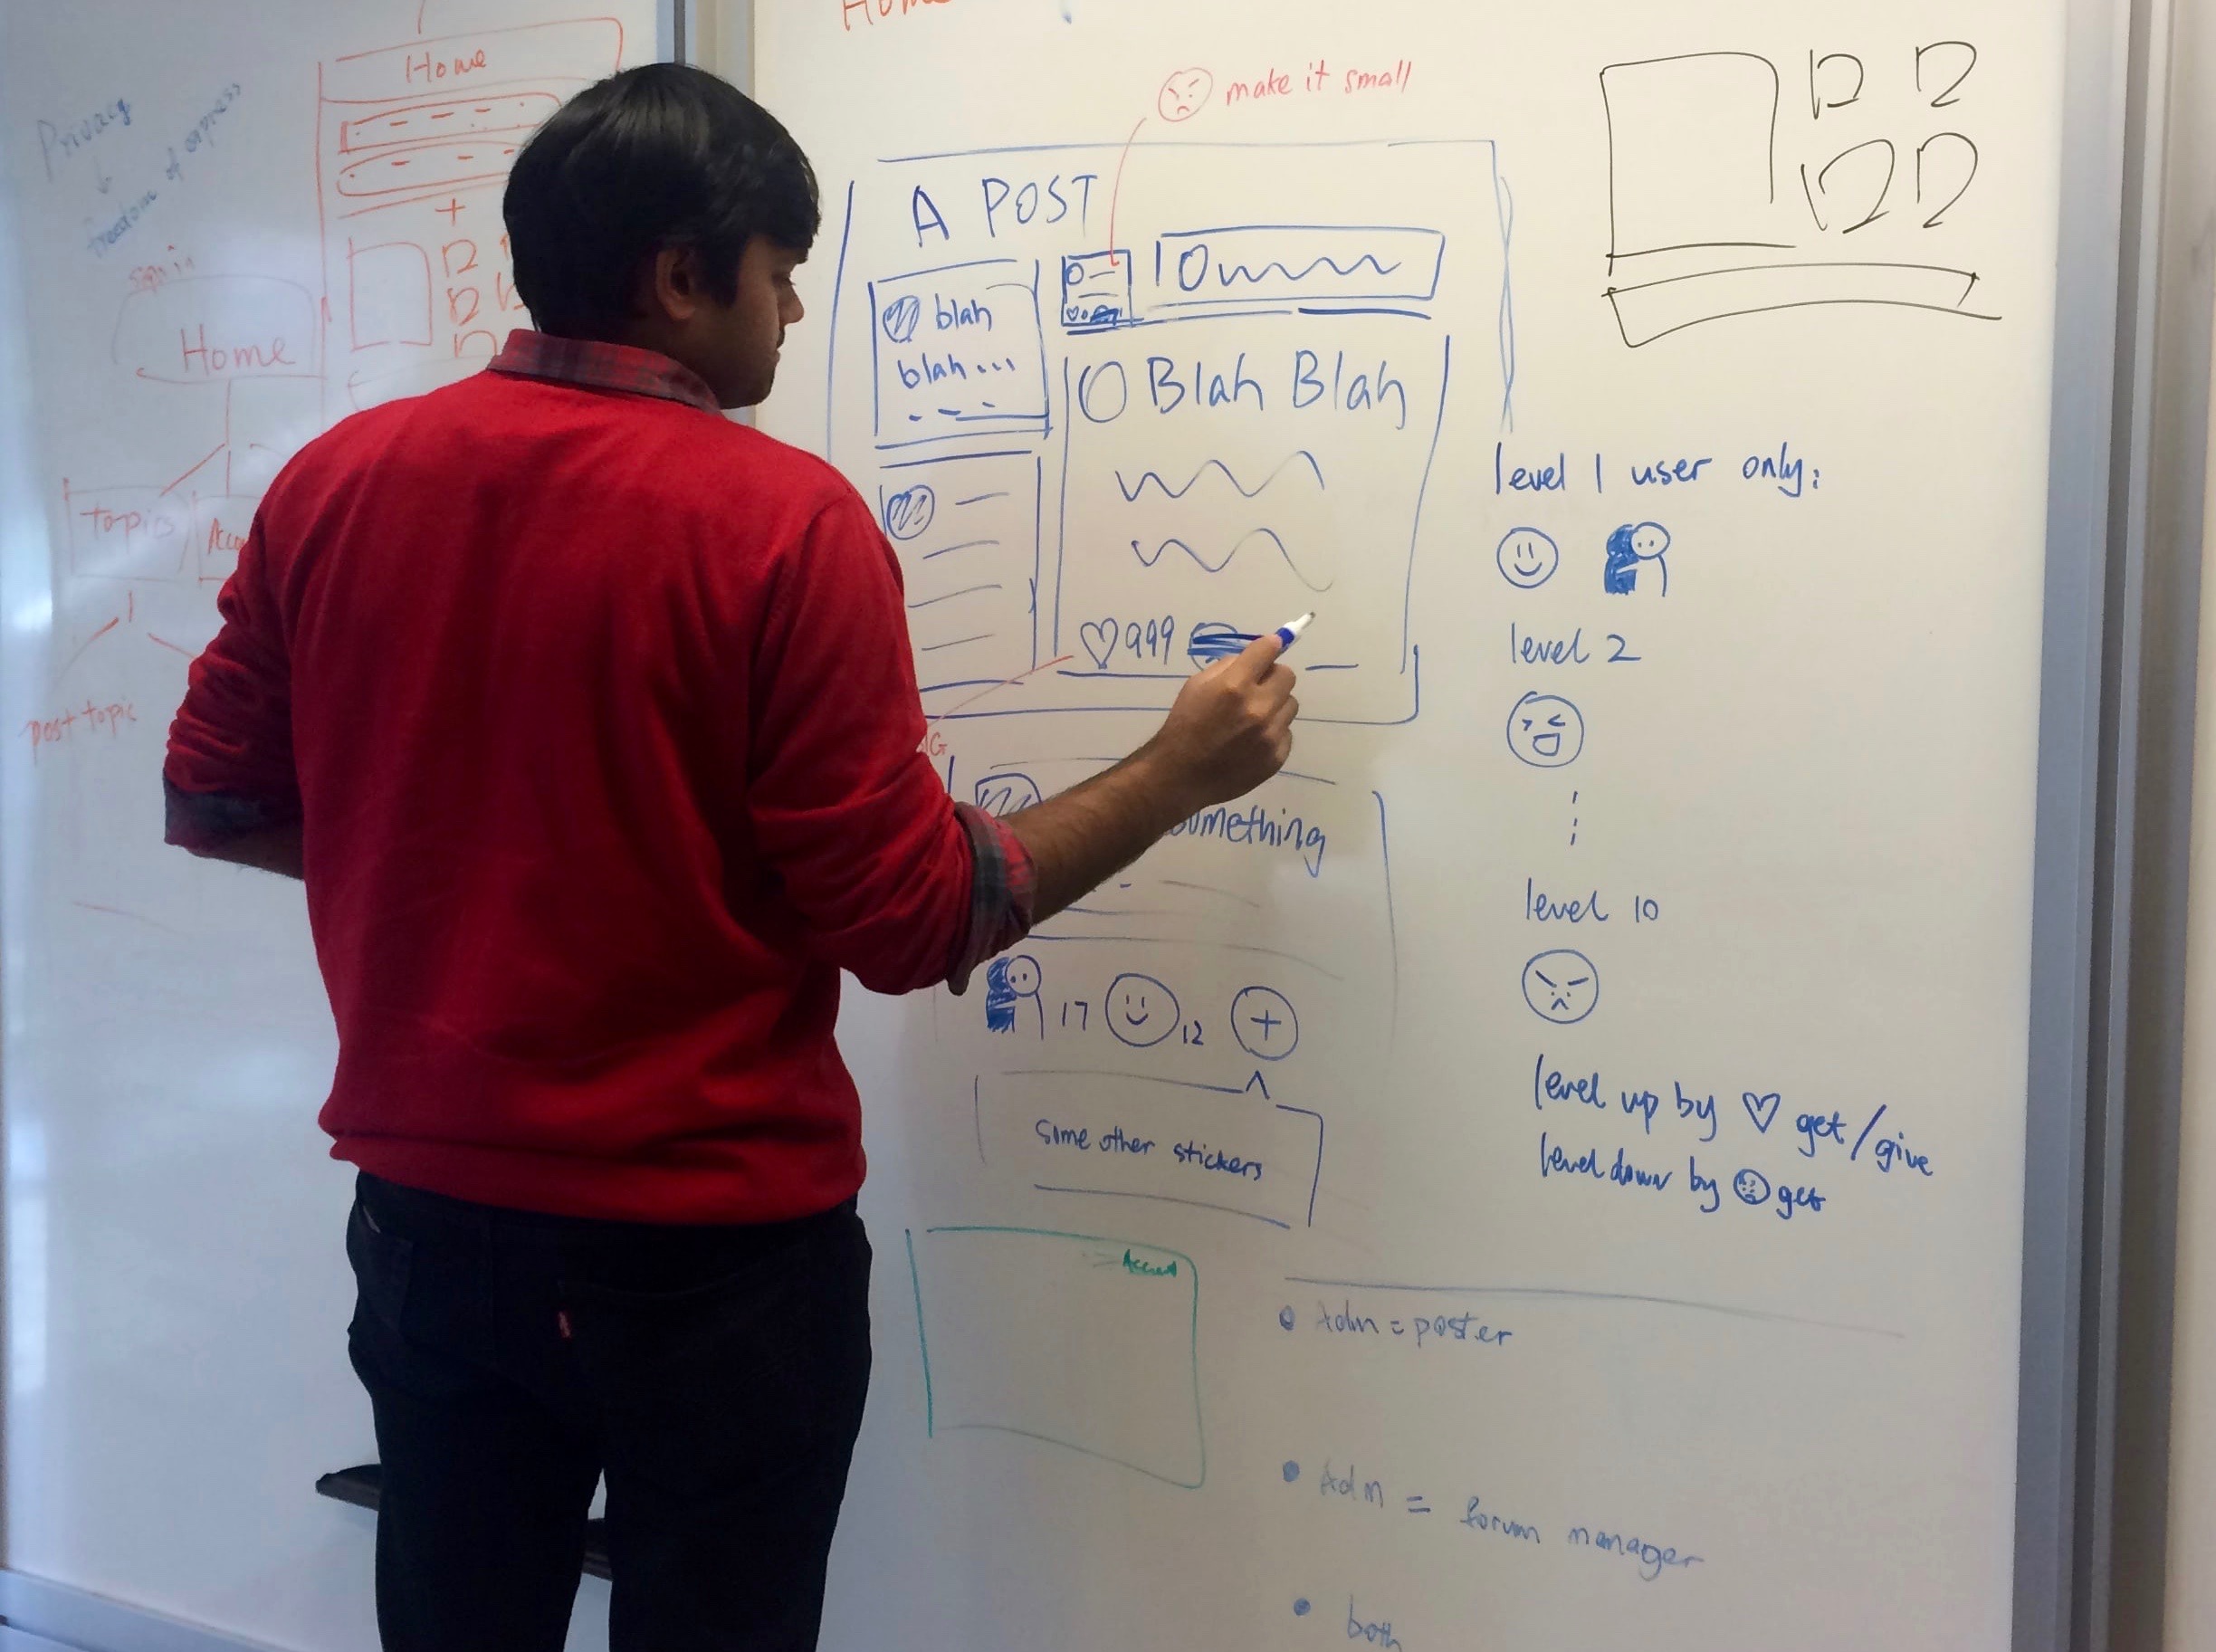 Privacy
freedom of express
sign in
Home
topics
post topic
Home
make it small
A POST
blah
blah...
Blah Blah
999
something
17
12
+
some other stickers
level 1 user only:
level 2
level 10
level up by ♡ get/give
level down by get
Adm = poster
Adm = forum manager
both